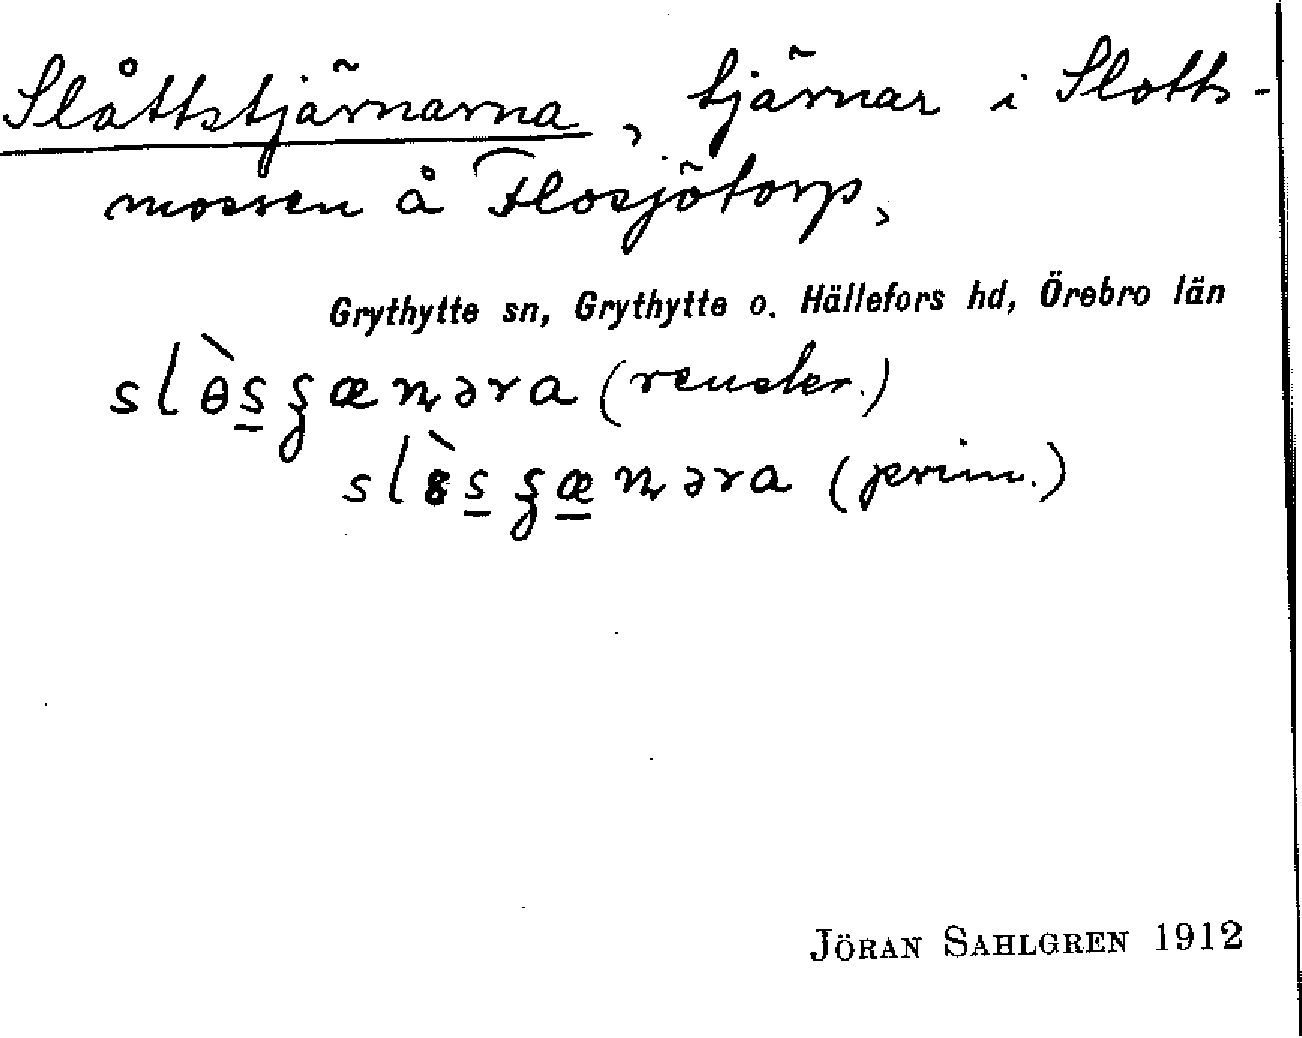 Slåttstjärnarna, tjärnar i Slotts-
mossen å Flosjötorp,
Grythytte sn, Grythytte o. Hällefors hd, Örebro län
(renskr.)
(prim.)
JÖRAN SAHLGREN 1912